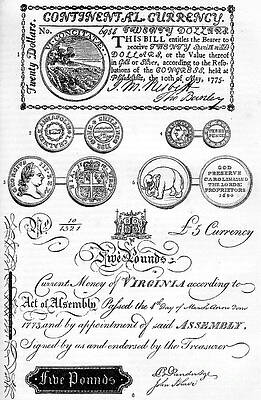 CONTINENTAL CURRENCY.
No. 6988 TWENTY DOLLARS
Twenty Dollars.
THIS BILL entitles the Bearer to
receive TWENTY Spanish milled
DOLLARS, or the Value thereof
in Gold or Silver, according to the Reso-
lutions of the CONGRESS, held at
Philadelphia, the 10th of May, 1775.
VI CONCITATÆ
GOD
PRESERVE
CAROLINA AND
THE LORDS
PROPRIETORS
1694
No 10
1321
£5 Currency
Five Pounds
Current Money of VIRGINIA according to
Act of Assembly Passed the 4th Day of March
1773 and by appointment of said ASSEMBLY.
Signed by us and endorsed by the Treasurer
Five Pounds
John Blair